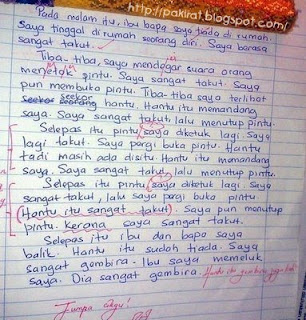 http://pakirat.blogspot.com/
Pada malam itu, ibu bapa saya tiada di rumah.
Saya tinggal di rumah seorang diri. Saya berasa
sangat takut.
Tiba-tiba, saya mendegar suara orang
mengetok pintu. Saya sangat takut. Saya
pun membuka pintu. Tiba-tiba saya terlihat
seekor
seekor seorang hantu. Hantu itu memandang
saya. Saya sangat takut lalu menutup pintu.
Selepas itu pintu saya diketuk lagi. Saya
lagi takut. Saya pergi buka pintu. Hantu
tadi masih ada disitu. Hantu itu memandang
saya. Saya sangat takut, lalu menutup pintu.
Selepas itu pintu saya diketuk lagi. Saya
sangat takut, lalu saya pergi buka pintu
(Hantu itu sangat takut). Saya pun menutup
pintu. Kerana saya sangat takut.
Selepas itu ibu dan bapa saya
balik. Hantu itu sudah tiada. Saya
sangat gembira. Ibu saya memeluk
saya. Dia sangat gembira. Hantu itu gembira juga
Jumpa cikgu!